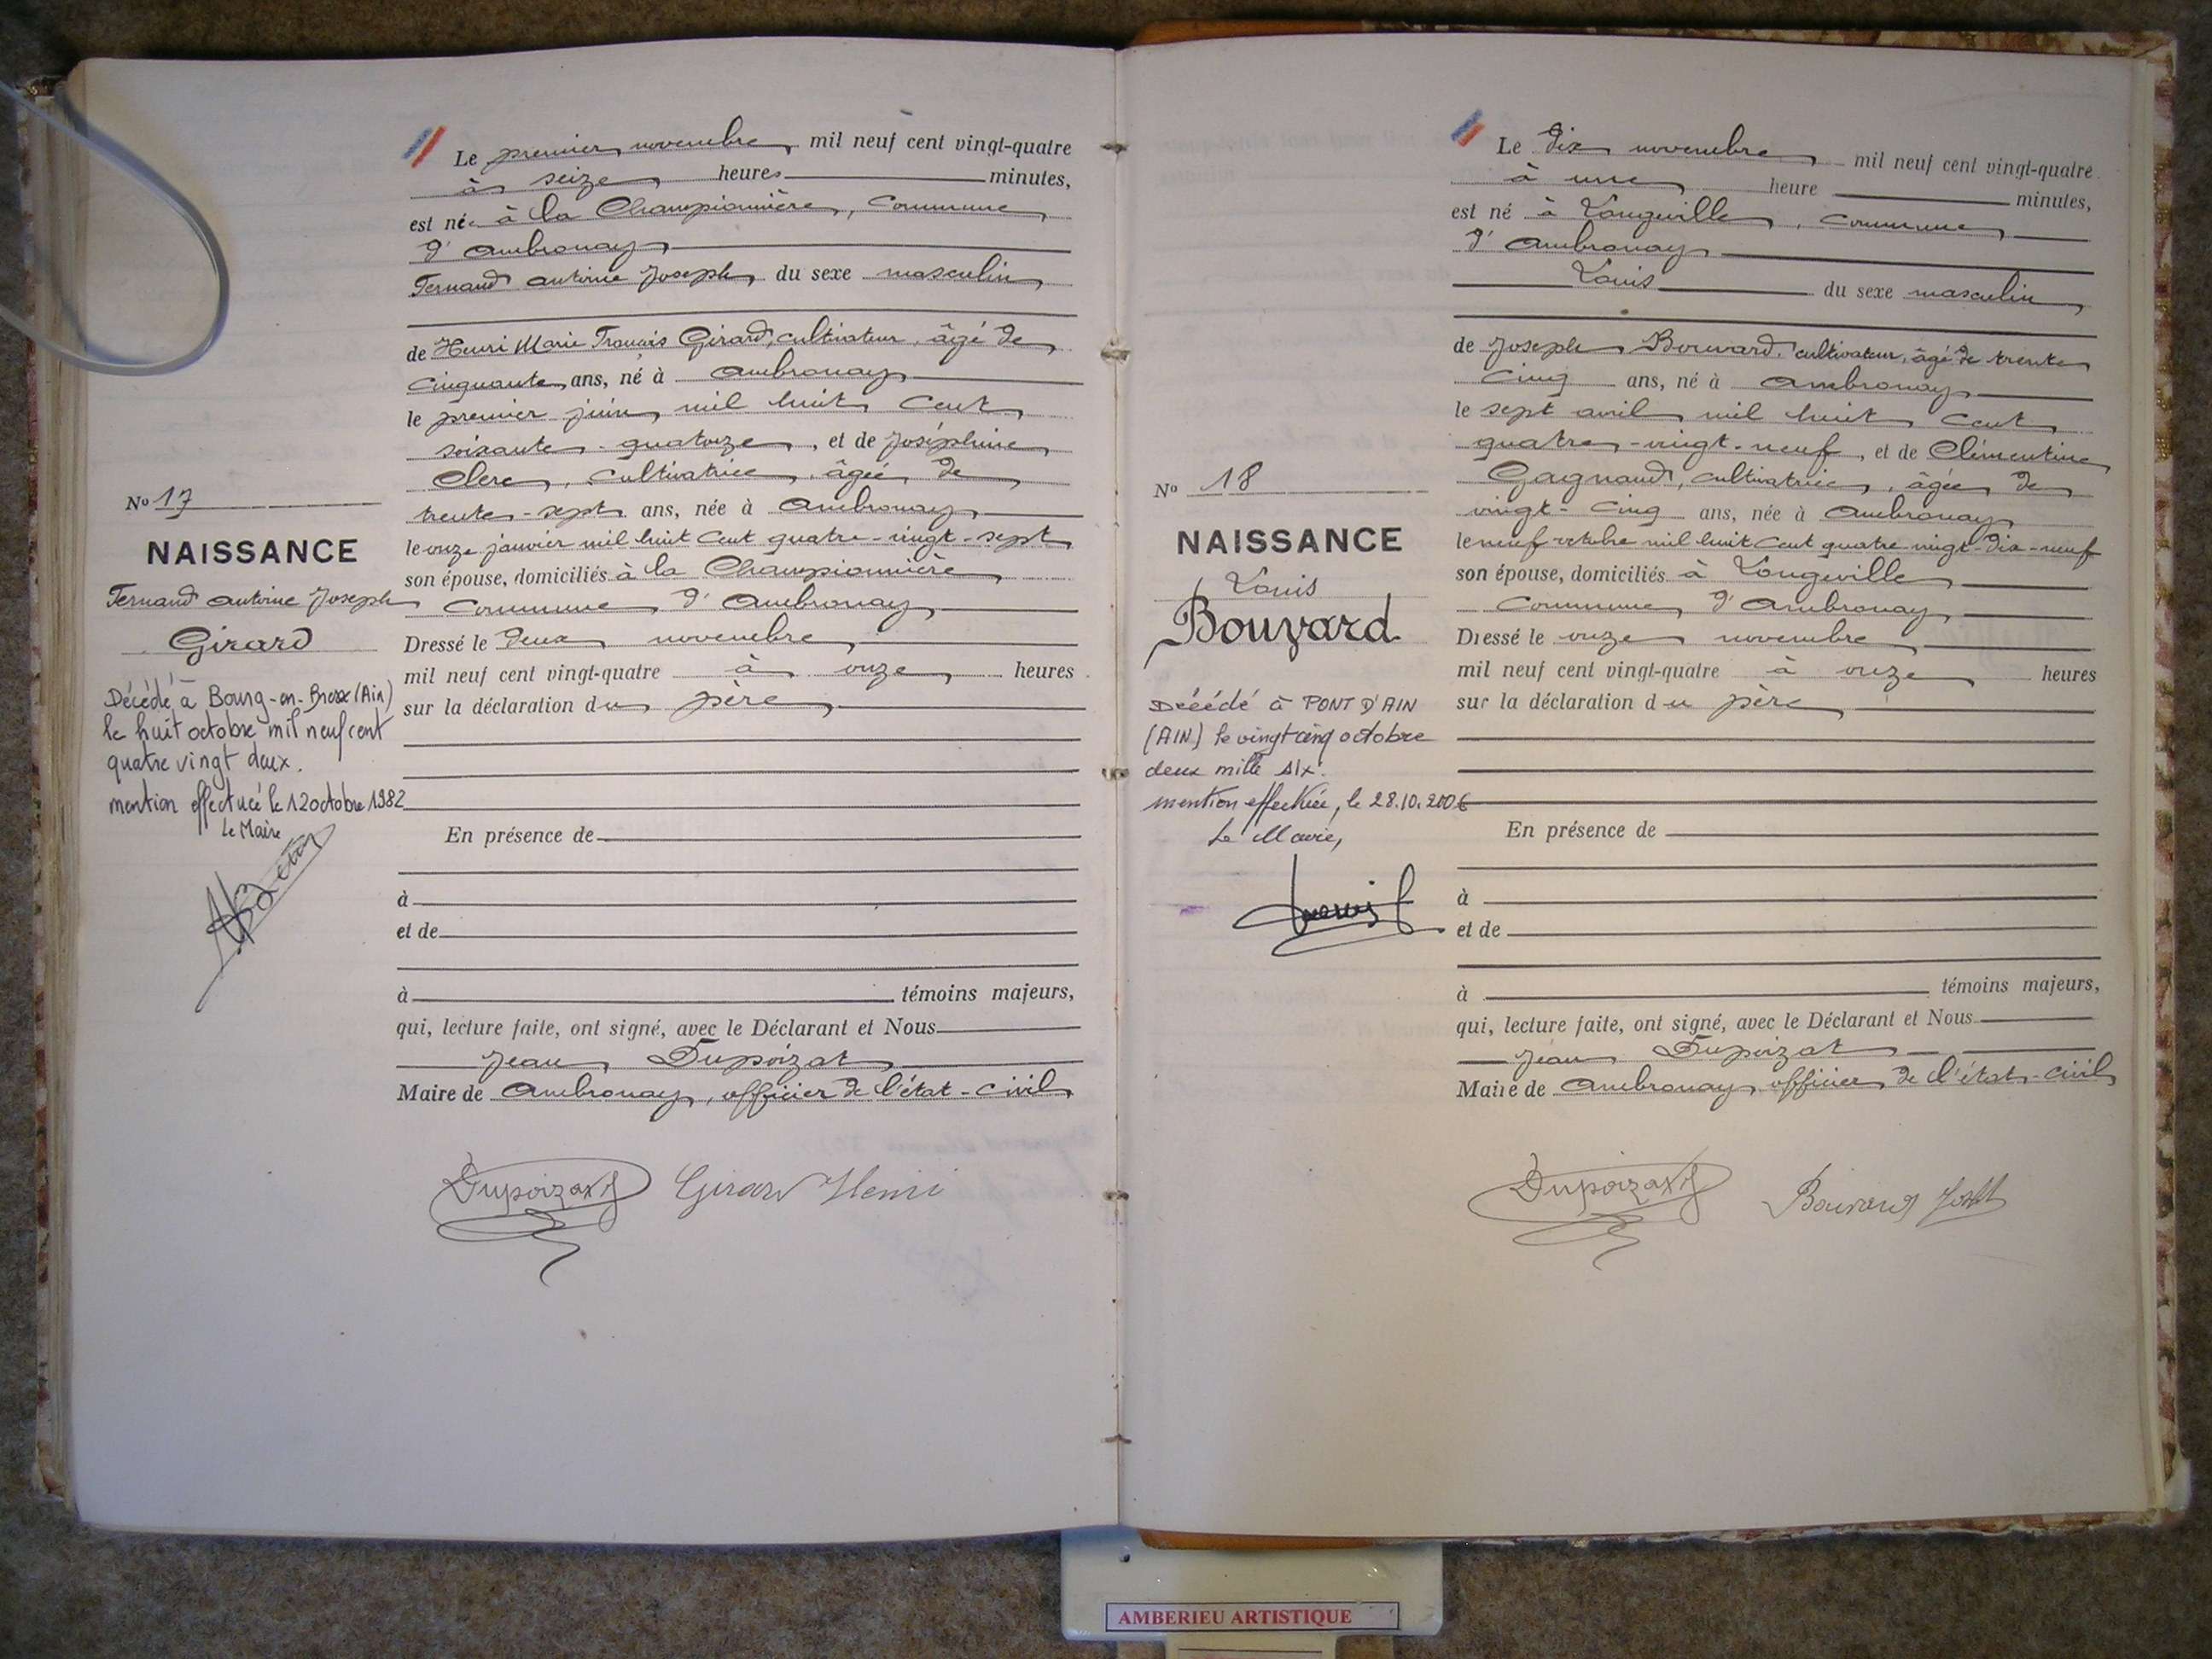 Le premier novembre mil neuf cent vingt-quatre
à seize heures minutes,
est né à la Championnière, Commune
d'Ambronay
Fernand Antoine Joseph du sexe masculin
de Henri Marie François Girard, cultivateur, âgé de
cinquante ans, né à Ambronay
le premier juin mil huit cent
soixante-quatorze, et de Joséphine
Clerc, cultivatrice, âgée de
trente-sept ans, née à Ambronay
le onze janvier mil huit cent quatre-vingt-sept
son épouse, domiciliés à la Championnière
Commune d'Ambronay
Dressé le deux novembre
mil neuf cent vingt-quatre à onze heures
sur la déclaration du père
En présence de
à
et de
à témoins majeurs,
qui, lecture faite, ont signé, avec le Déclarant et Nous
Jean Dupoizat
Maire de Ambronay, officier de l'état-civil
Dupoizat Girard Henri
No 17
NAISSANCE
Fernand Antoine Joseph
Girard
Décédé à Bourg-en-Bresse (Ain)
le huit octobre mil neuf cent
quatre vingt deux.
mention effectuée le 12 octobre 1982
Le Maire
No 18
NAISSANCE
Louis
Bouvard
Décédé à PONT D'AIN
(AIN) le vingt cinq octobre
deux mille six.
mention effectuée, le 28.10.2006
Le Maire,
Le dix novembre mil neuf cent vingt-quatre
à une heure minutes,
est né à Longeville, Commune
d'Ambronay
Louis du sexe masculin
de Joseph Bouvard, cultivateur, âgé de trente
cinq ans, né à Ambronay
le sept avril mil huit cent
quatre-vingt-neuf, et de Clémentine
Gagnaud, cultivatrice, âgée de
vingt-cinq ans, née à Ambronay
le neuf octobre mil huit cent quatre vingt-dix-neuf
son épouse, domiciliés à Longeville
Commune d'Ambronay
Dressé le onze novembre
mil neuf cent vingt-quatre à onze heures
sur la déclaration du père
En présence de
à
et de
à témoins majeurs,
qui, lecture faite, ont signé, avec le Déclarant et Nous
Jean Dupoizat
Maire de Ambronay, officier de l'état-civil
Dupoizat Bouvard Josph
AMBERIEU ARTISTIQUE